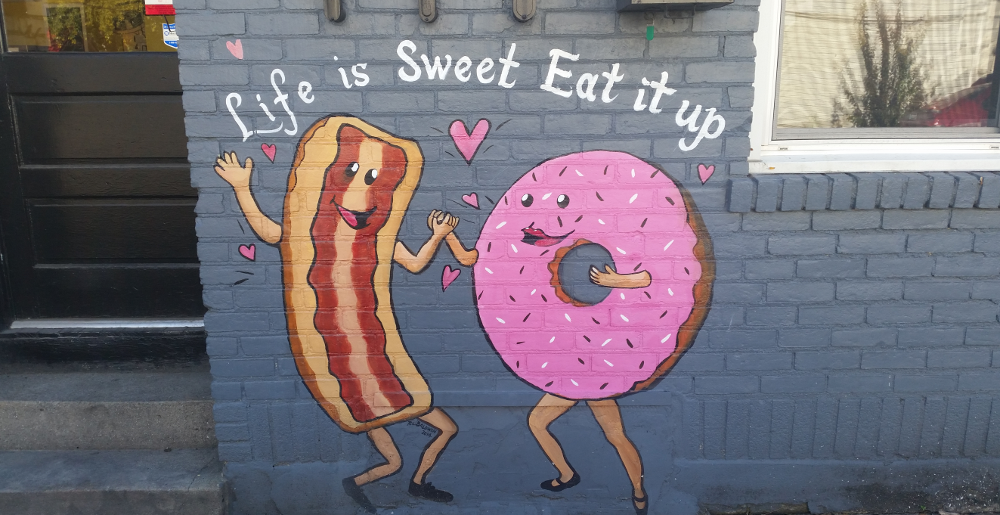 Life is Sweet Eat it up